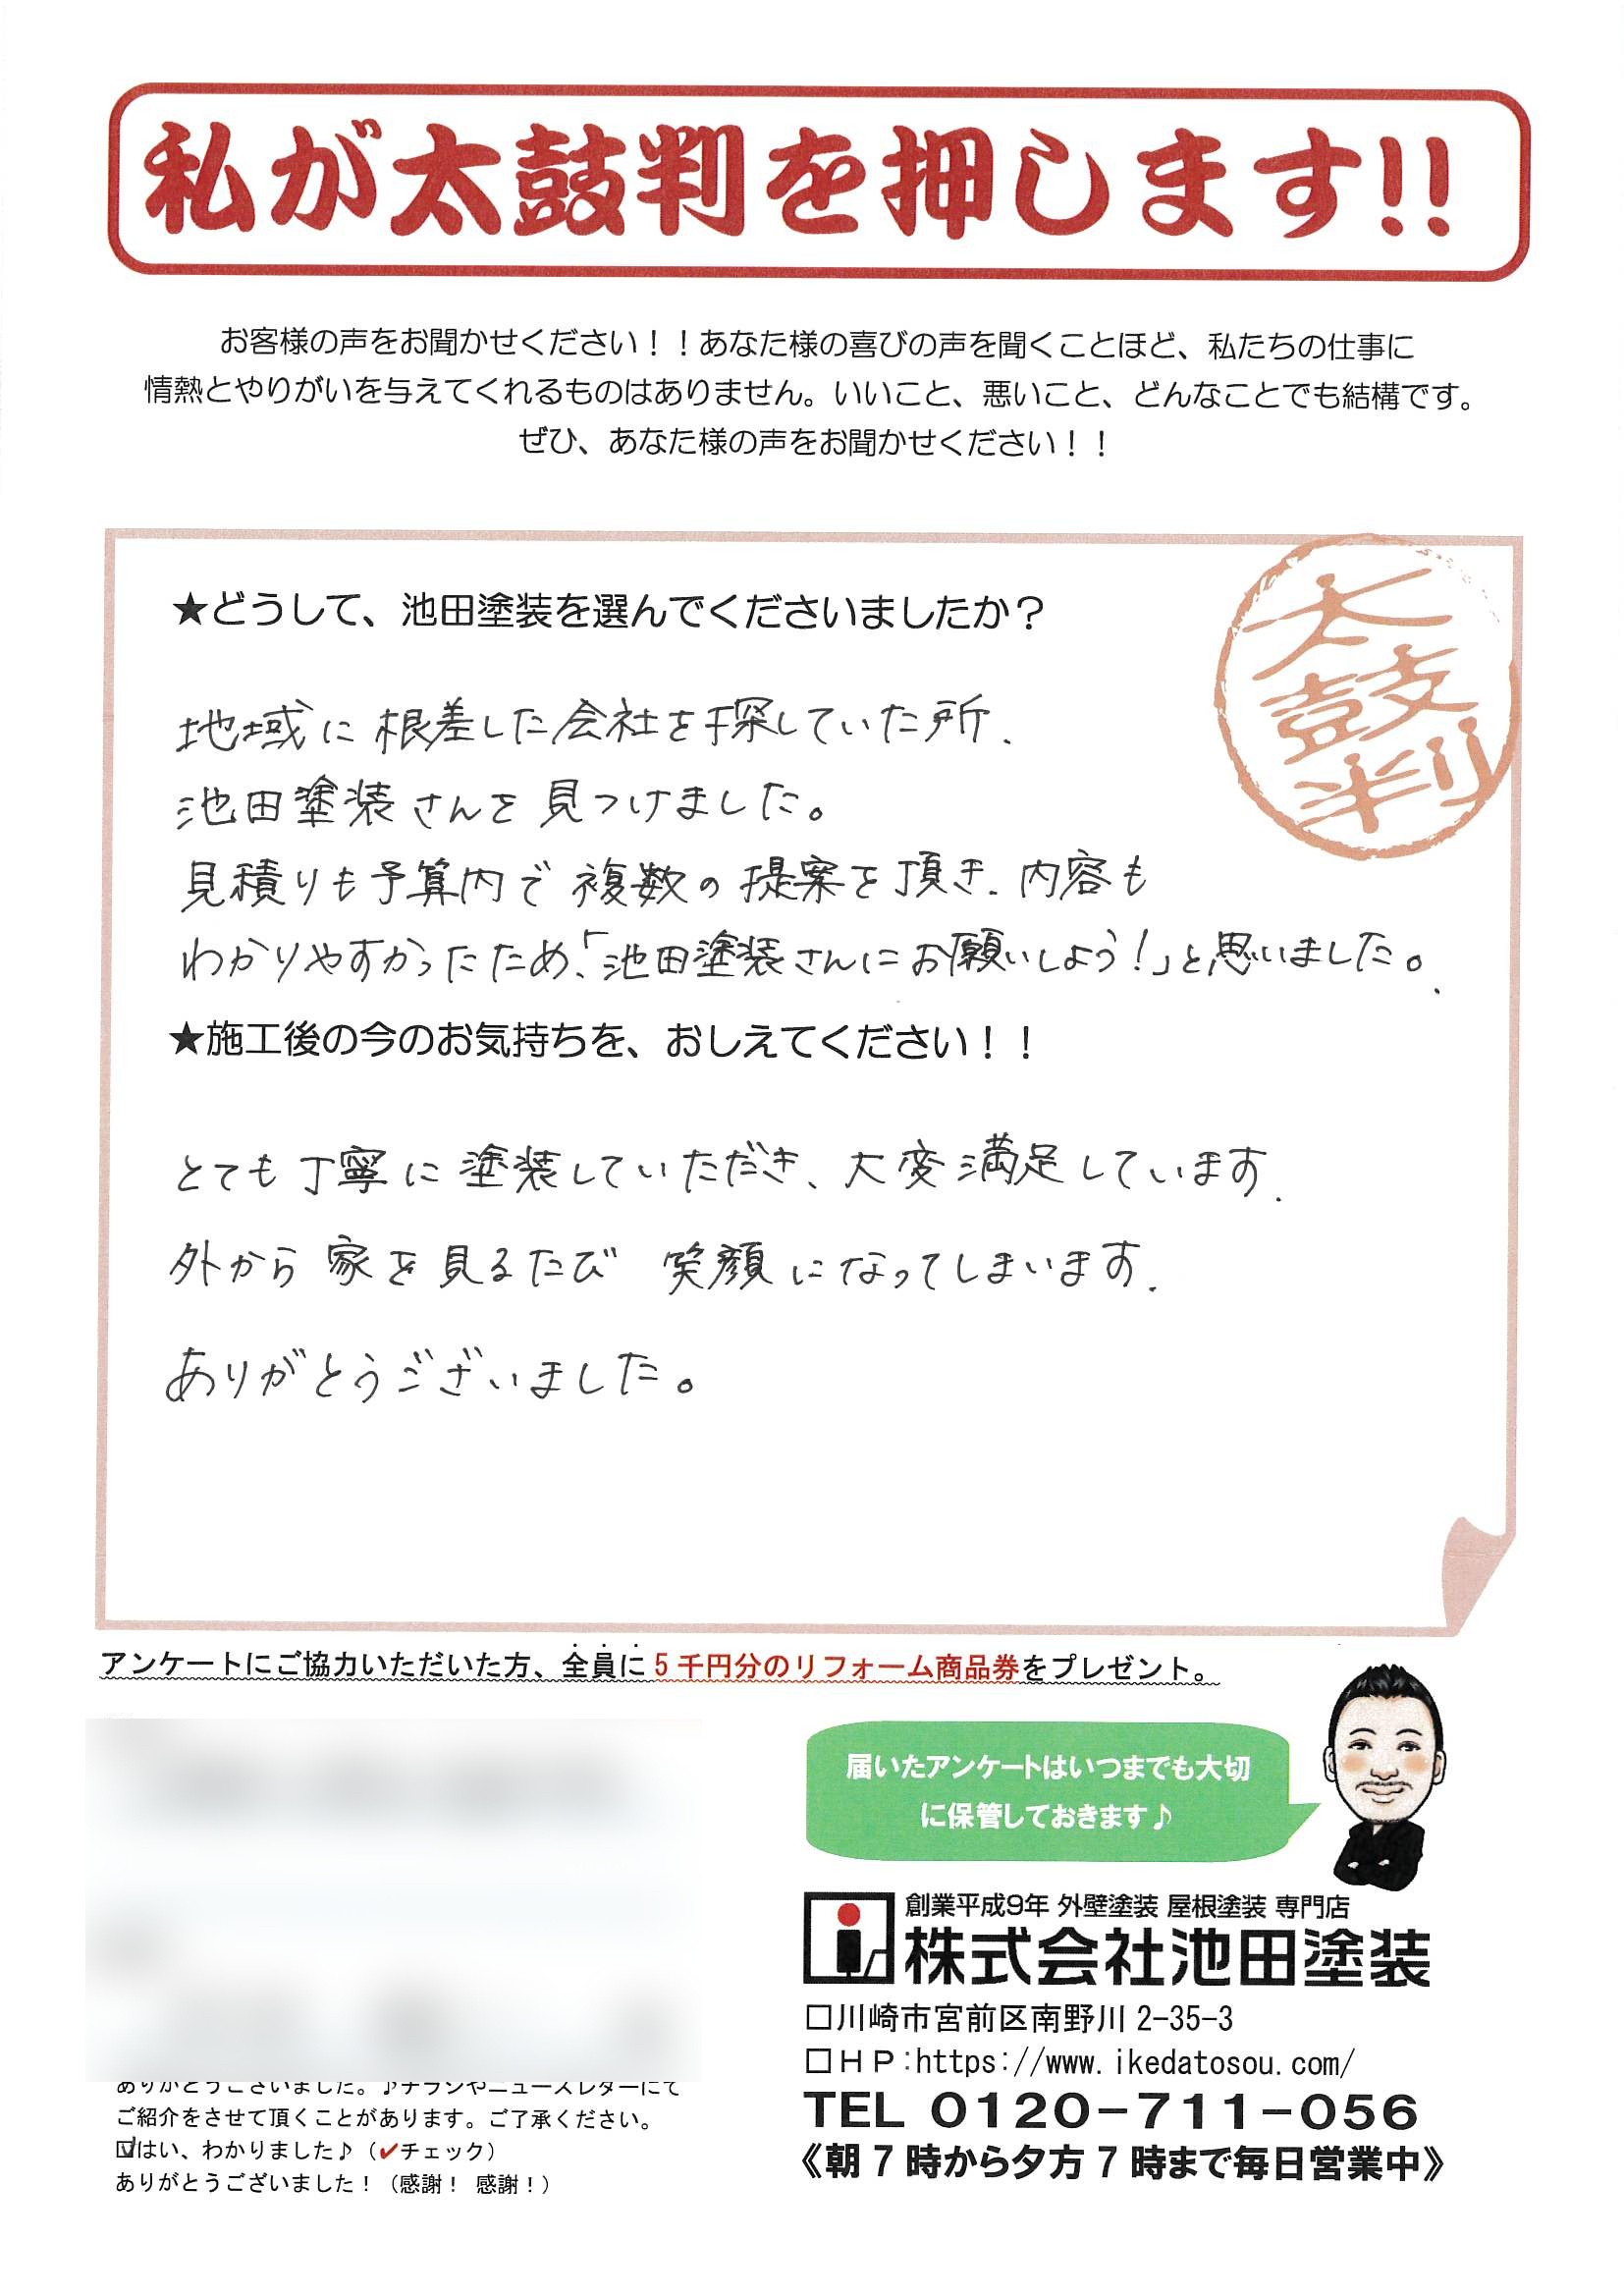 私が太鼓判を押します!!
お客様の声をお聞かせください！！あなた様の喜びの声を聞くことほど、私たちの仕事に
情熱とやりがいを与えてくれるものはありません。いいこと、悪いこと、どんなことでも結構です。
ぜひ、あなた様の声をお聞かせください！！
太鼓判
★どうして、池田塗装を選んでくださいましたか？
地域に根差した会社を探していた所、
池田塗装さんを見つけました。
見積りも予算内で複数の提案を頂き、内容も
わかりやすかったため、「池田塗装さんにお願いしよう！」と思いました。
★施工後の今のお気持ちを、おしえてください！！
とても丁寧に塗装していただき、大変満足しています。
外から家を見るたび 笑顔になってしまいます。
ありがとうございました。
アンケートにご協力いただいた方、全員に5千円分のリフォーム商品券をプレゼント。
届いたアンケートはいつまでも大切
に保管しておきます♪
創業平成9年 外壁塗装 屋根塗装 専門店
株式会社池田塗装
□川崎市宮前区南野川2-35-3
□ＨＰ:https://www.ikedatosou.com/
TEL 0120-711-056
《朝7時から夕方7時まで毎日営業中》
ありがとうございました。♪チラシやニュースレターにて
ご紹介をさせて頂くことがあります。ご了承ください。
☑はい、わかりました♪（✔チェック）
ありがとうございました！（感謝！ 感謝！）